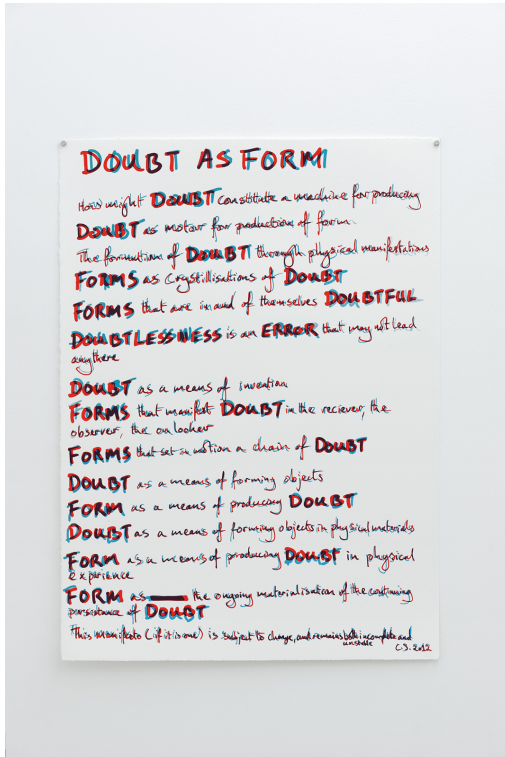 DOUBT AS FORM
How might DOUBT constitute a machine for producing
DOUBT as motor for production of form
The formation of DOUBT through physical manifestations
FORMS as crystillisations of DOUBT
FORMS that are in and of themselves DOUBTFUL
DOUBTLESSNESS is an ERROR that may not lead
anywhere
DOUBT as a means of invention
FORMS that manifest DOUBT in the reciever, the
observer, the onlooker
FORMS that set in motion a chain of DOUBT
DOUBT as a means of forming objects
FORM as a means of producing DOUBT
DOUBT as a means of forming objects in physical materials
FORM as a means of producing DOUBT in physical
experience
FORM as the ongoing materialisation of the continuing
persistance of DOUBT
*This manifesto (if it is one) is subject to change, and remains both incomplete and
unstable
C.S. 2012